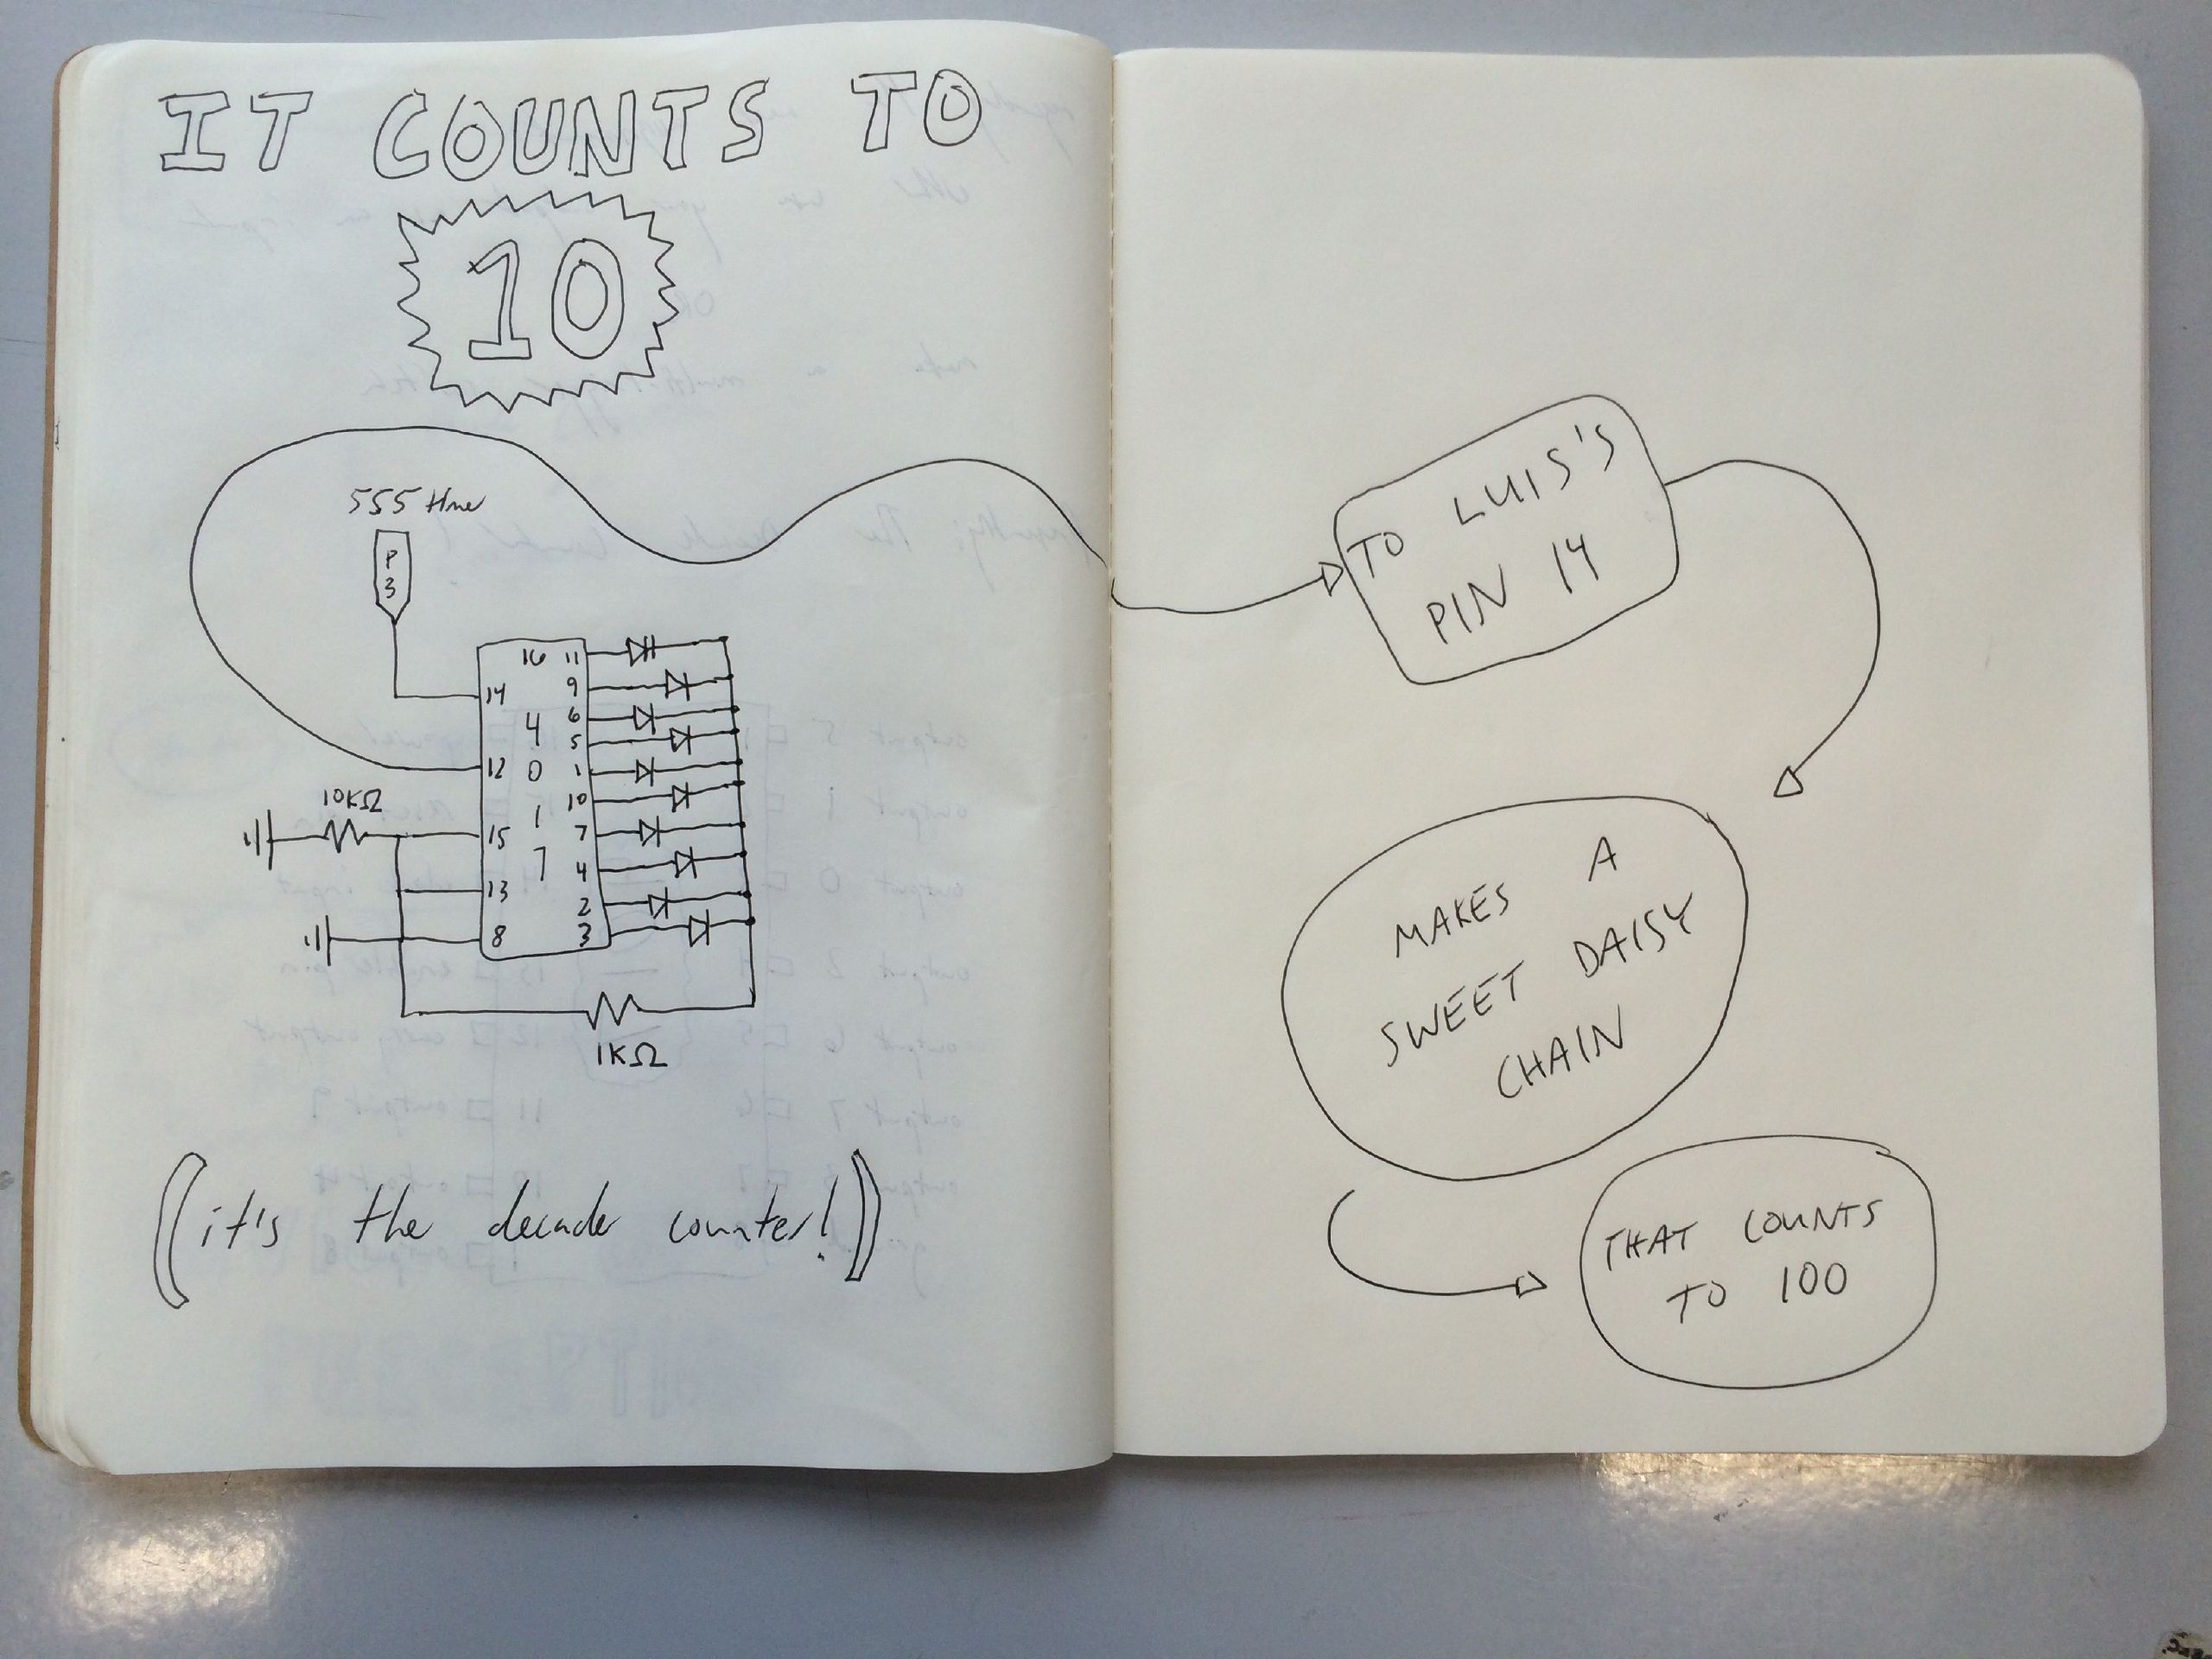 IT COUNTS TO
10
555 timer
P
3
16 11
14
9
4
6
5
12
0
1
10
10KΩ
15
1
7
7
4
13
2
8
3
1KΩ
(it's the decade counter!)
TO LUIS'S
PIN 14
MAKES A
SWEET DAISY
CHAIN
THAT COUNTS
TO 100